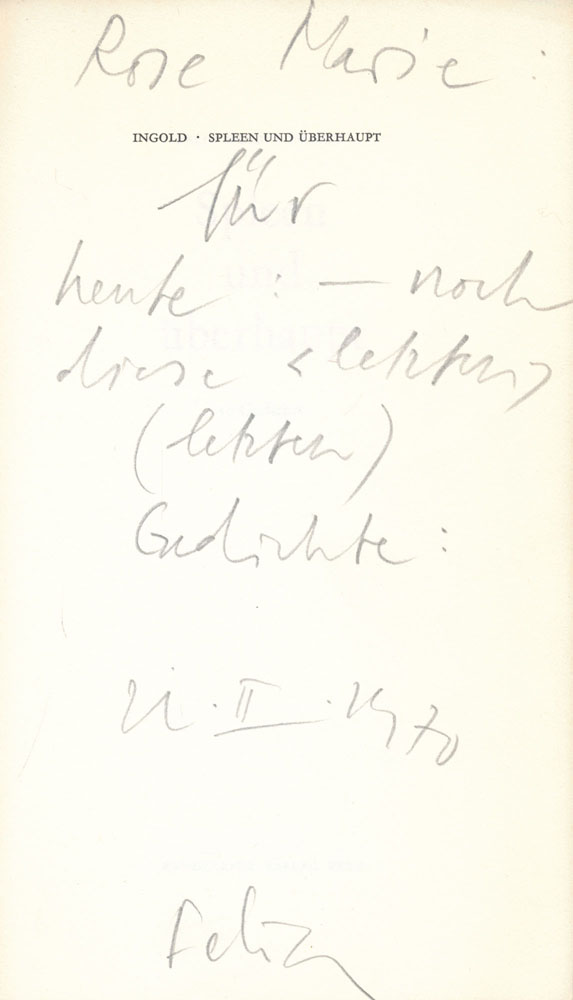 Rose Marie:
INGOLD · SPLEEN UND ÜBERHAUPT
für
heute: — noch
diese <letzten>
(letzten)
Gedichte:
II. 1970
Felix